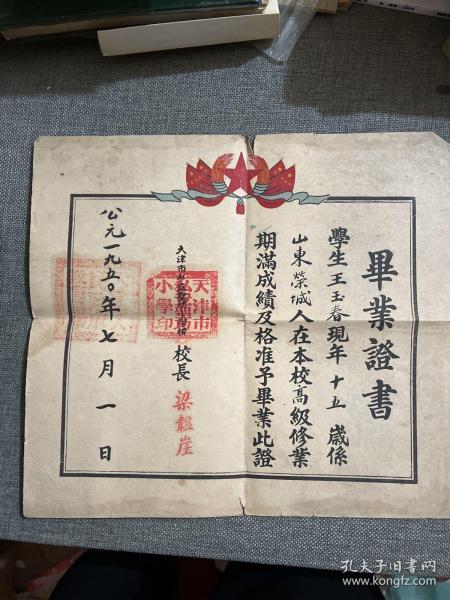 畢業證書
學生王玉春現年十五歲係
山東榮城人在本校高級修業
期滿成績及格准予畢業此證
天津市
校長 梁韞崖
天津市
小學印
公元一九五〇年七月一日
孔夫子旧书网
www.kongfz.com